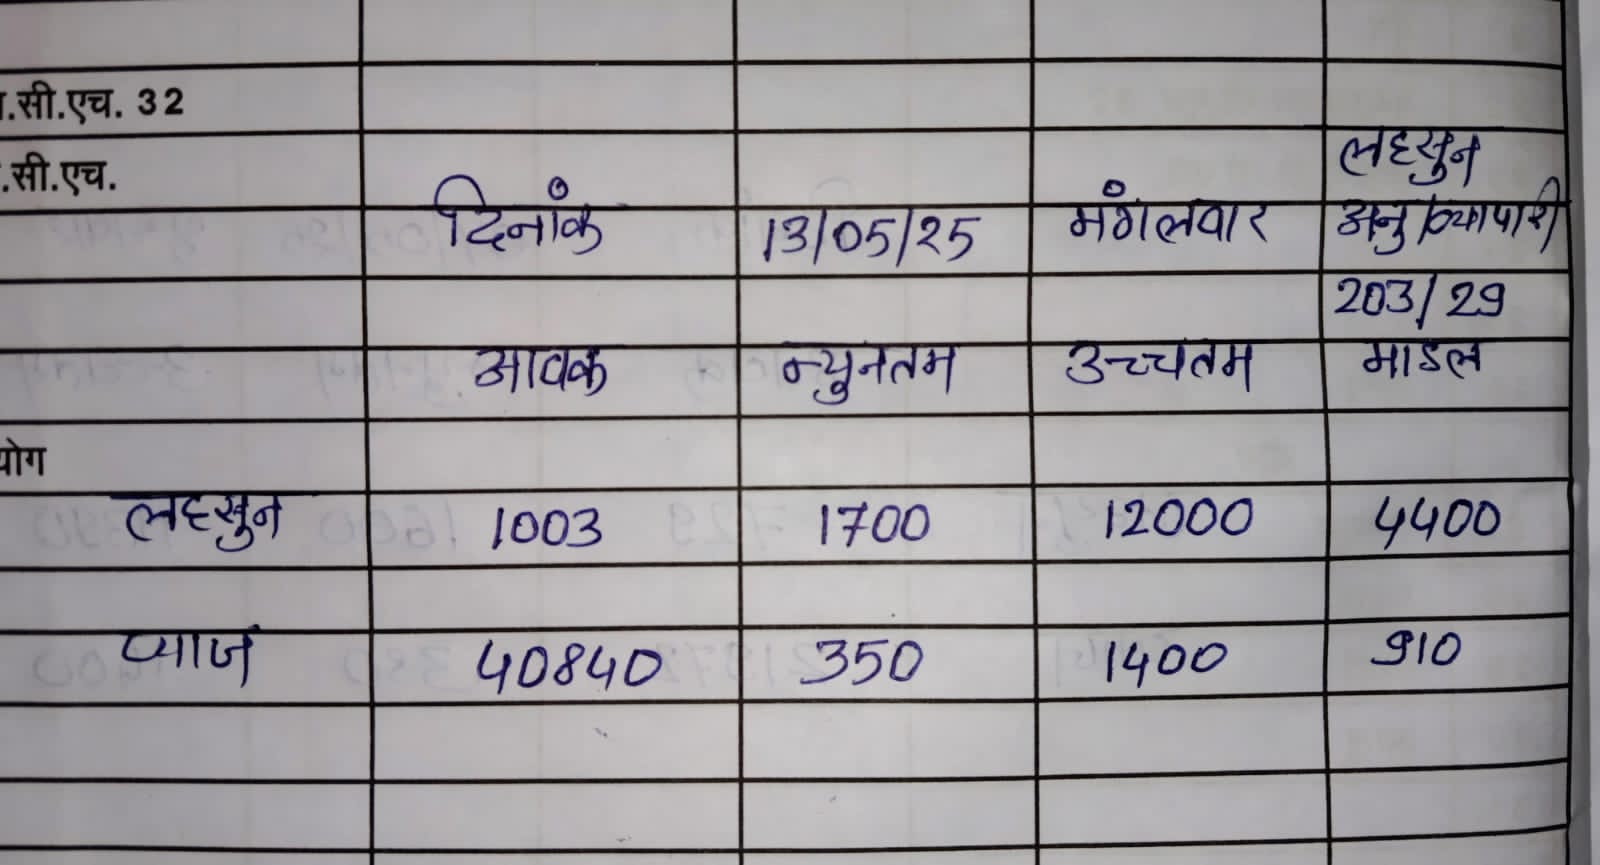 .सी.एच. 32
.सी.एच.
लहसुन
दिनांक 13/05/25 मंगलवार अनु/व्यापारी
203/29
आवक न्युनतम उच्चतम माडल
योग
लहसुन 1003 1700 12000 4400
प्याज 40840 350 1400 910